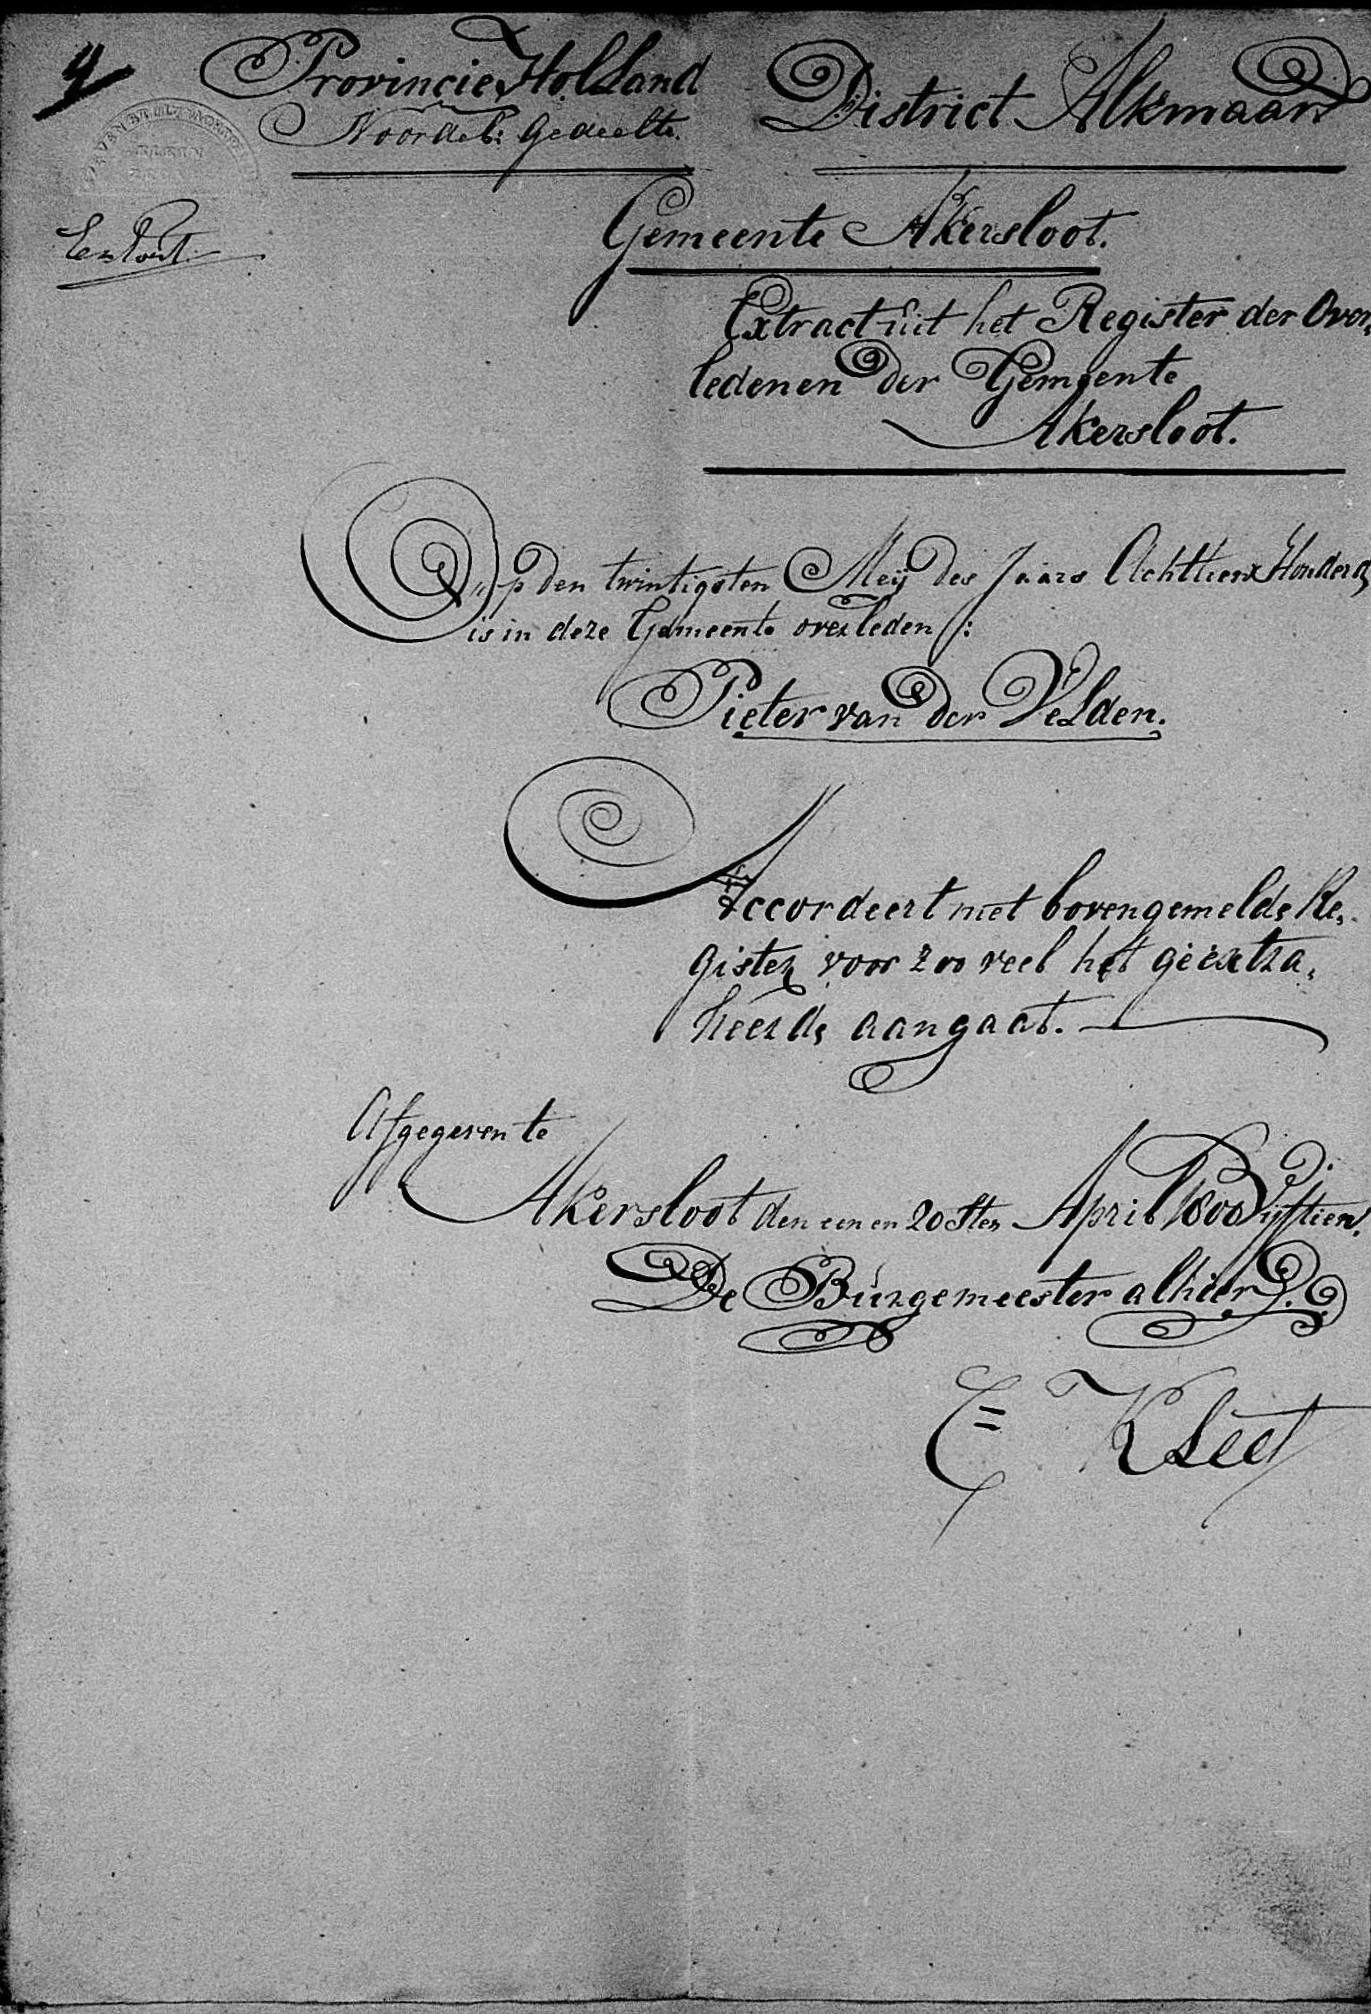 4
Provincie Holland
Noordel: Gedeelte.
District Alkmaar
Gemeente Akersloot.
Extract uit het Register der Over
ledenen der Gemeente
Akersloot.
Op den twintigsten Meij des Jaars Achttien Honderd
is in deze Gemeente overleden :
Pieter van der Velden.
Accordeert met bovengemelde Re,
gister voor zoo veel het geëxtra,
heerde aangaat.
Afgegeven te
Akersloot den een en 20sten April 1800 Vijftien.
De Burgemeester alhier
E= Kleet